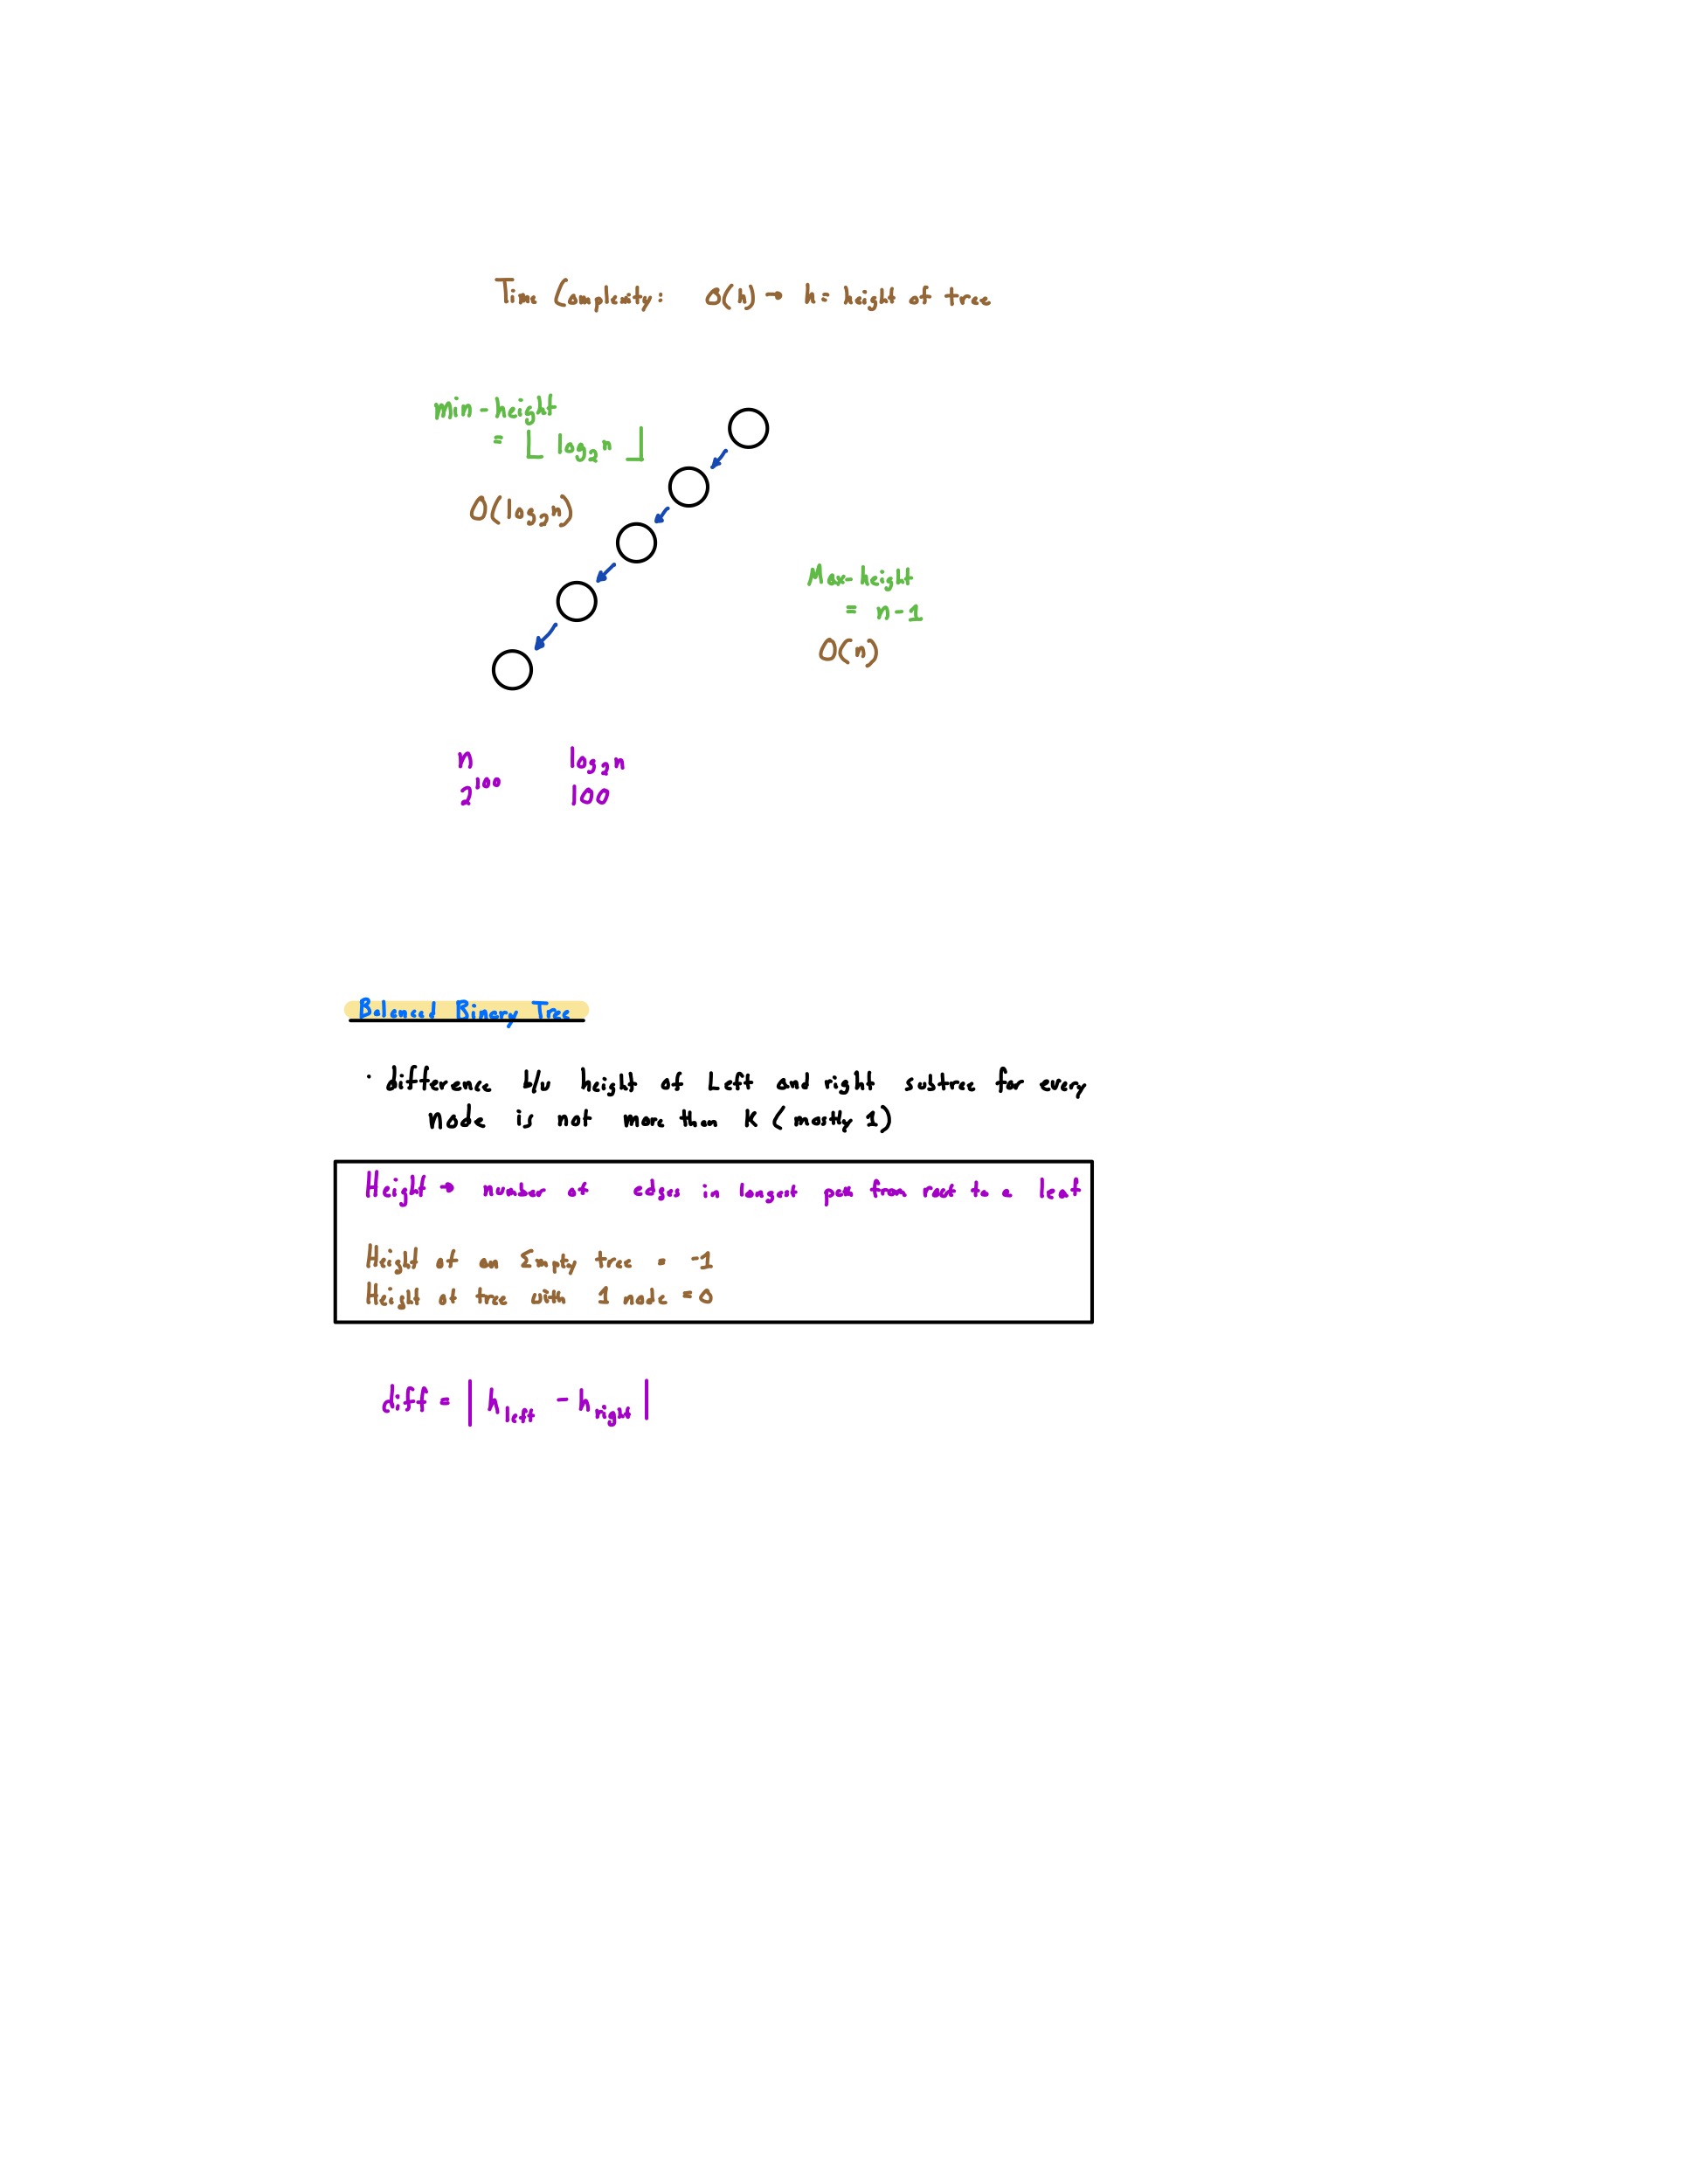 Time Complexity: O(h) → h = height of tree
min-height
= ⌊ log₂n ⌋
O(log₂n)
Max-height
= n-1
O(n)
n log₂n
2¹⁰⁰ 100
Balanced Binary Tree
· difference b/w height of Left and right subtree for every
node is not more than K (mostly 1)
Height → number of edges in longest path from root to a leaf
Height of an Empty tree = -1
Height of tree with 1 node = 0
diff = | h_left - h_right |